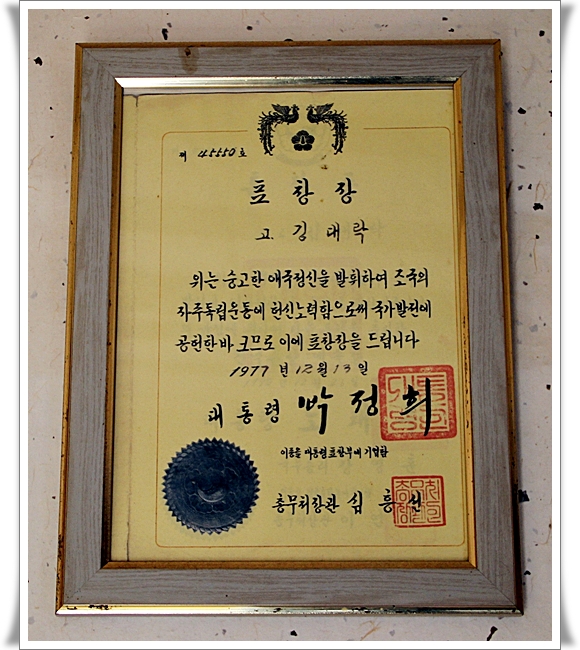 제 45550 호
표창장
고 김대락
위는 숭고한 애국정신을 발휘하여 조국의
자주독립운동에 헌신노력함으로써 국가발전에
공헌한바 크므로 이에 표창장을 드립니다
1977 년 12 월 13 일
대통령 박정희
이증을 대통령표창부에 기입함
총무처장관 심흥선